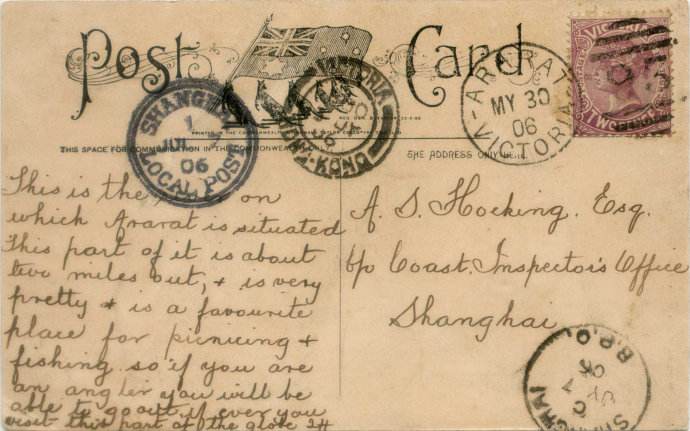 Post Card
VICTORIA
HONG-KONG
SHANGHAI
1
06
LOCAL POST
ARARAT
MY 30
06
VICTORIA
VICTORIA
TWO PENCE
THIS SPACE FOR COMMUNICATION IN THE COMMONWEALTH ONLY.
THE ADDRESS ONLY HERE.
This is the on
which Ararat is situated
This part of it is about
two miles out, + is very
pretty + is a favourite
place for picnicing +
fishing so if you are
an angler you will be
able to go out if ever you
visit this part of the globe
A. S. Hocking. Esq.
c/o Coast Inspector's Office
Shanghai
SHANGHAI
B.P.O.